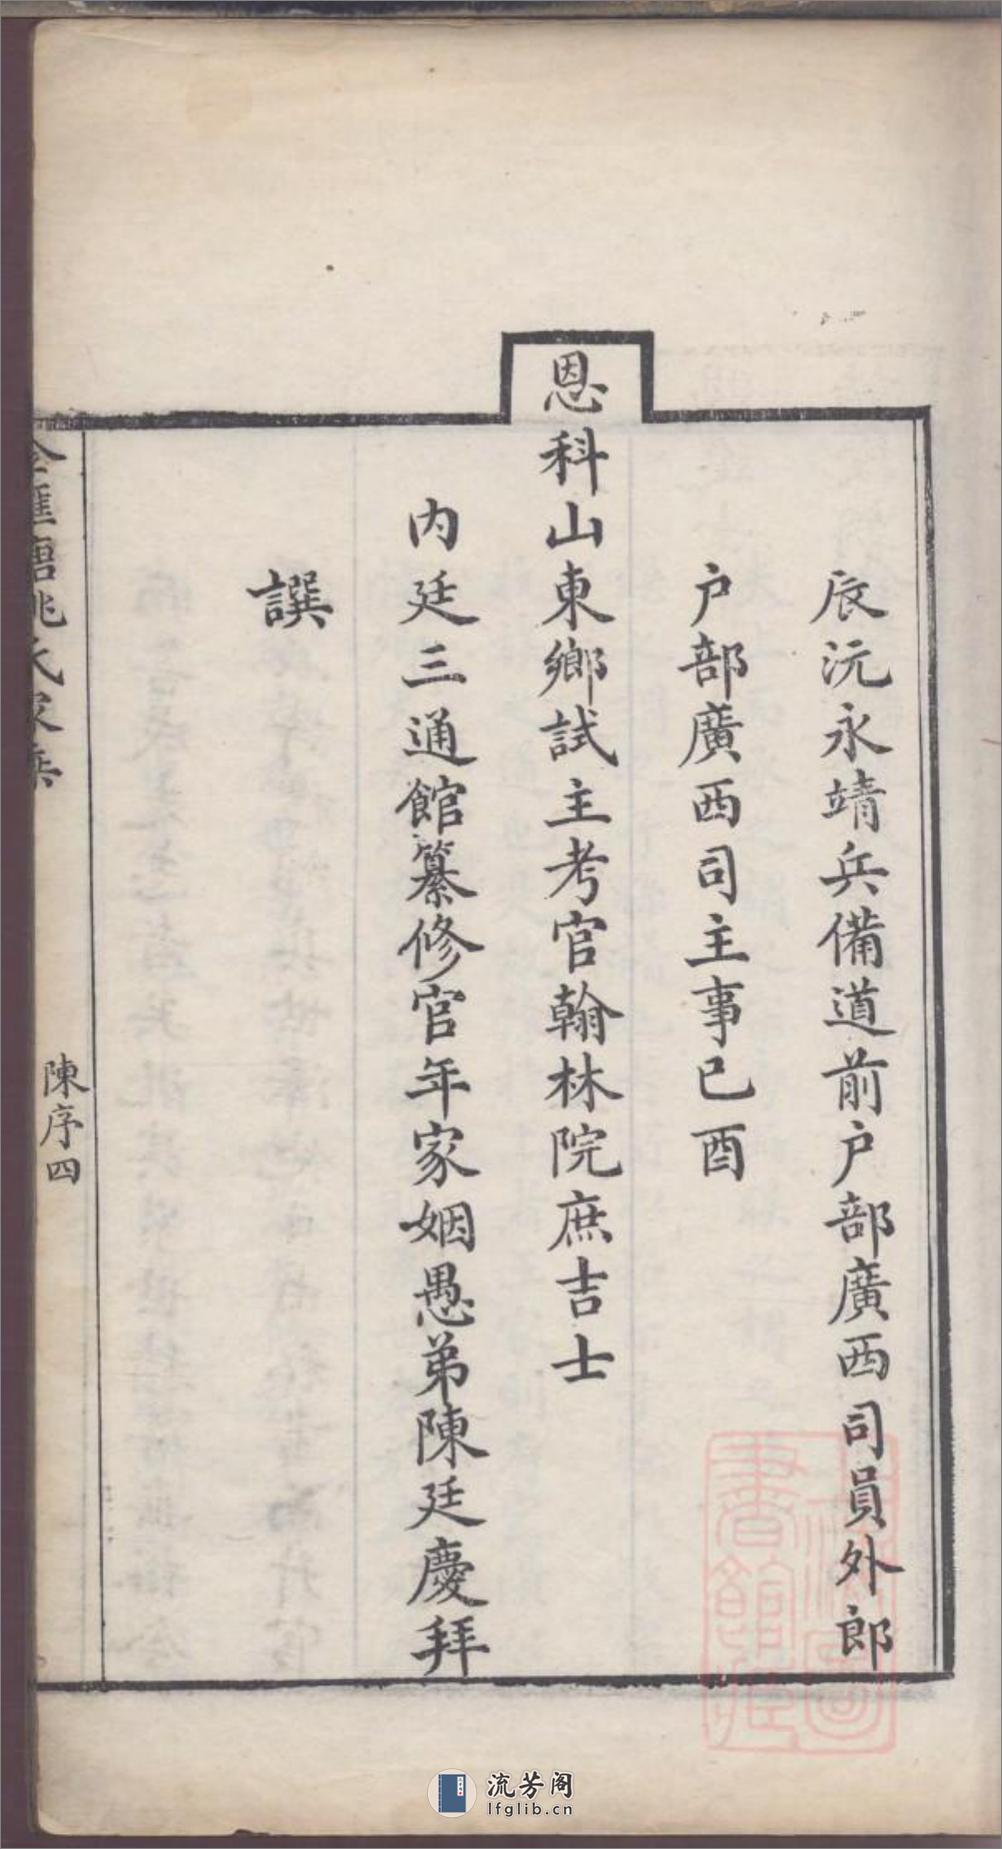 辰沅永靖兵備道前户部廣西司員外郎
户部廣西司主事已酉
恩科山東鄉試主考官翰林院庶吉士
内廷三通館纂修官年家姻愚弟陳廷慶拜
譔
姚氏家乘
陳序四
流芳阁
lfglib.cn